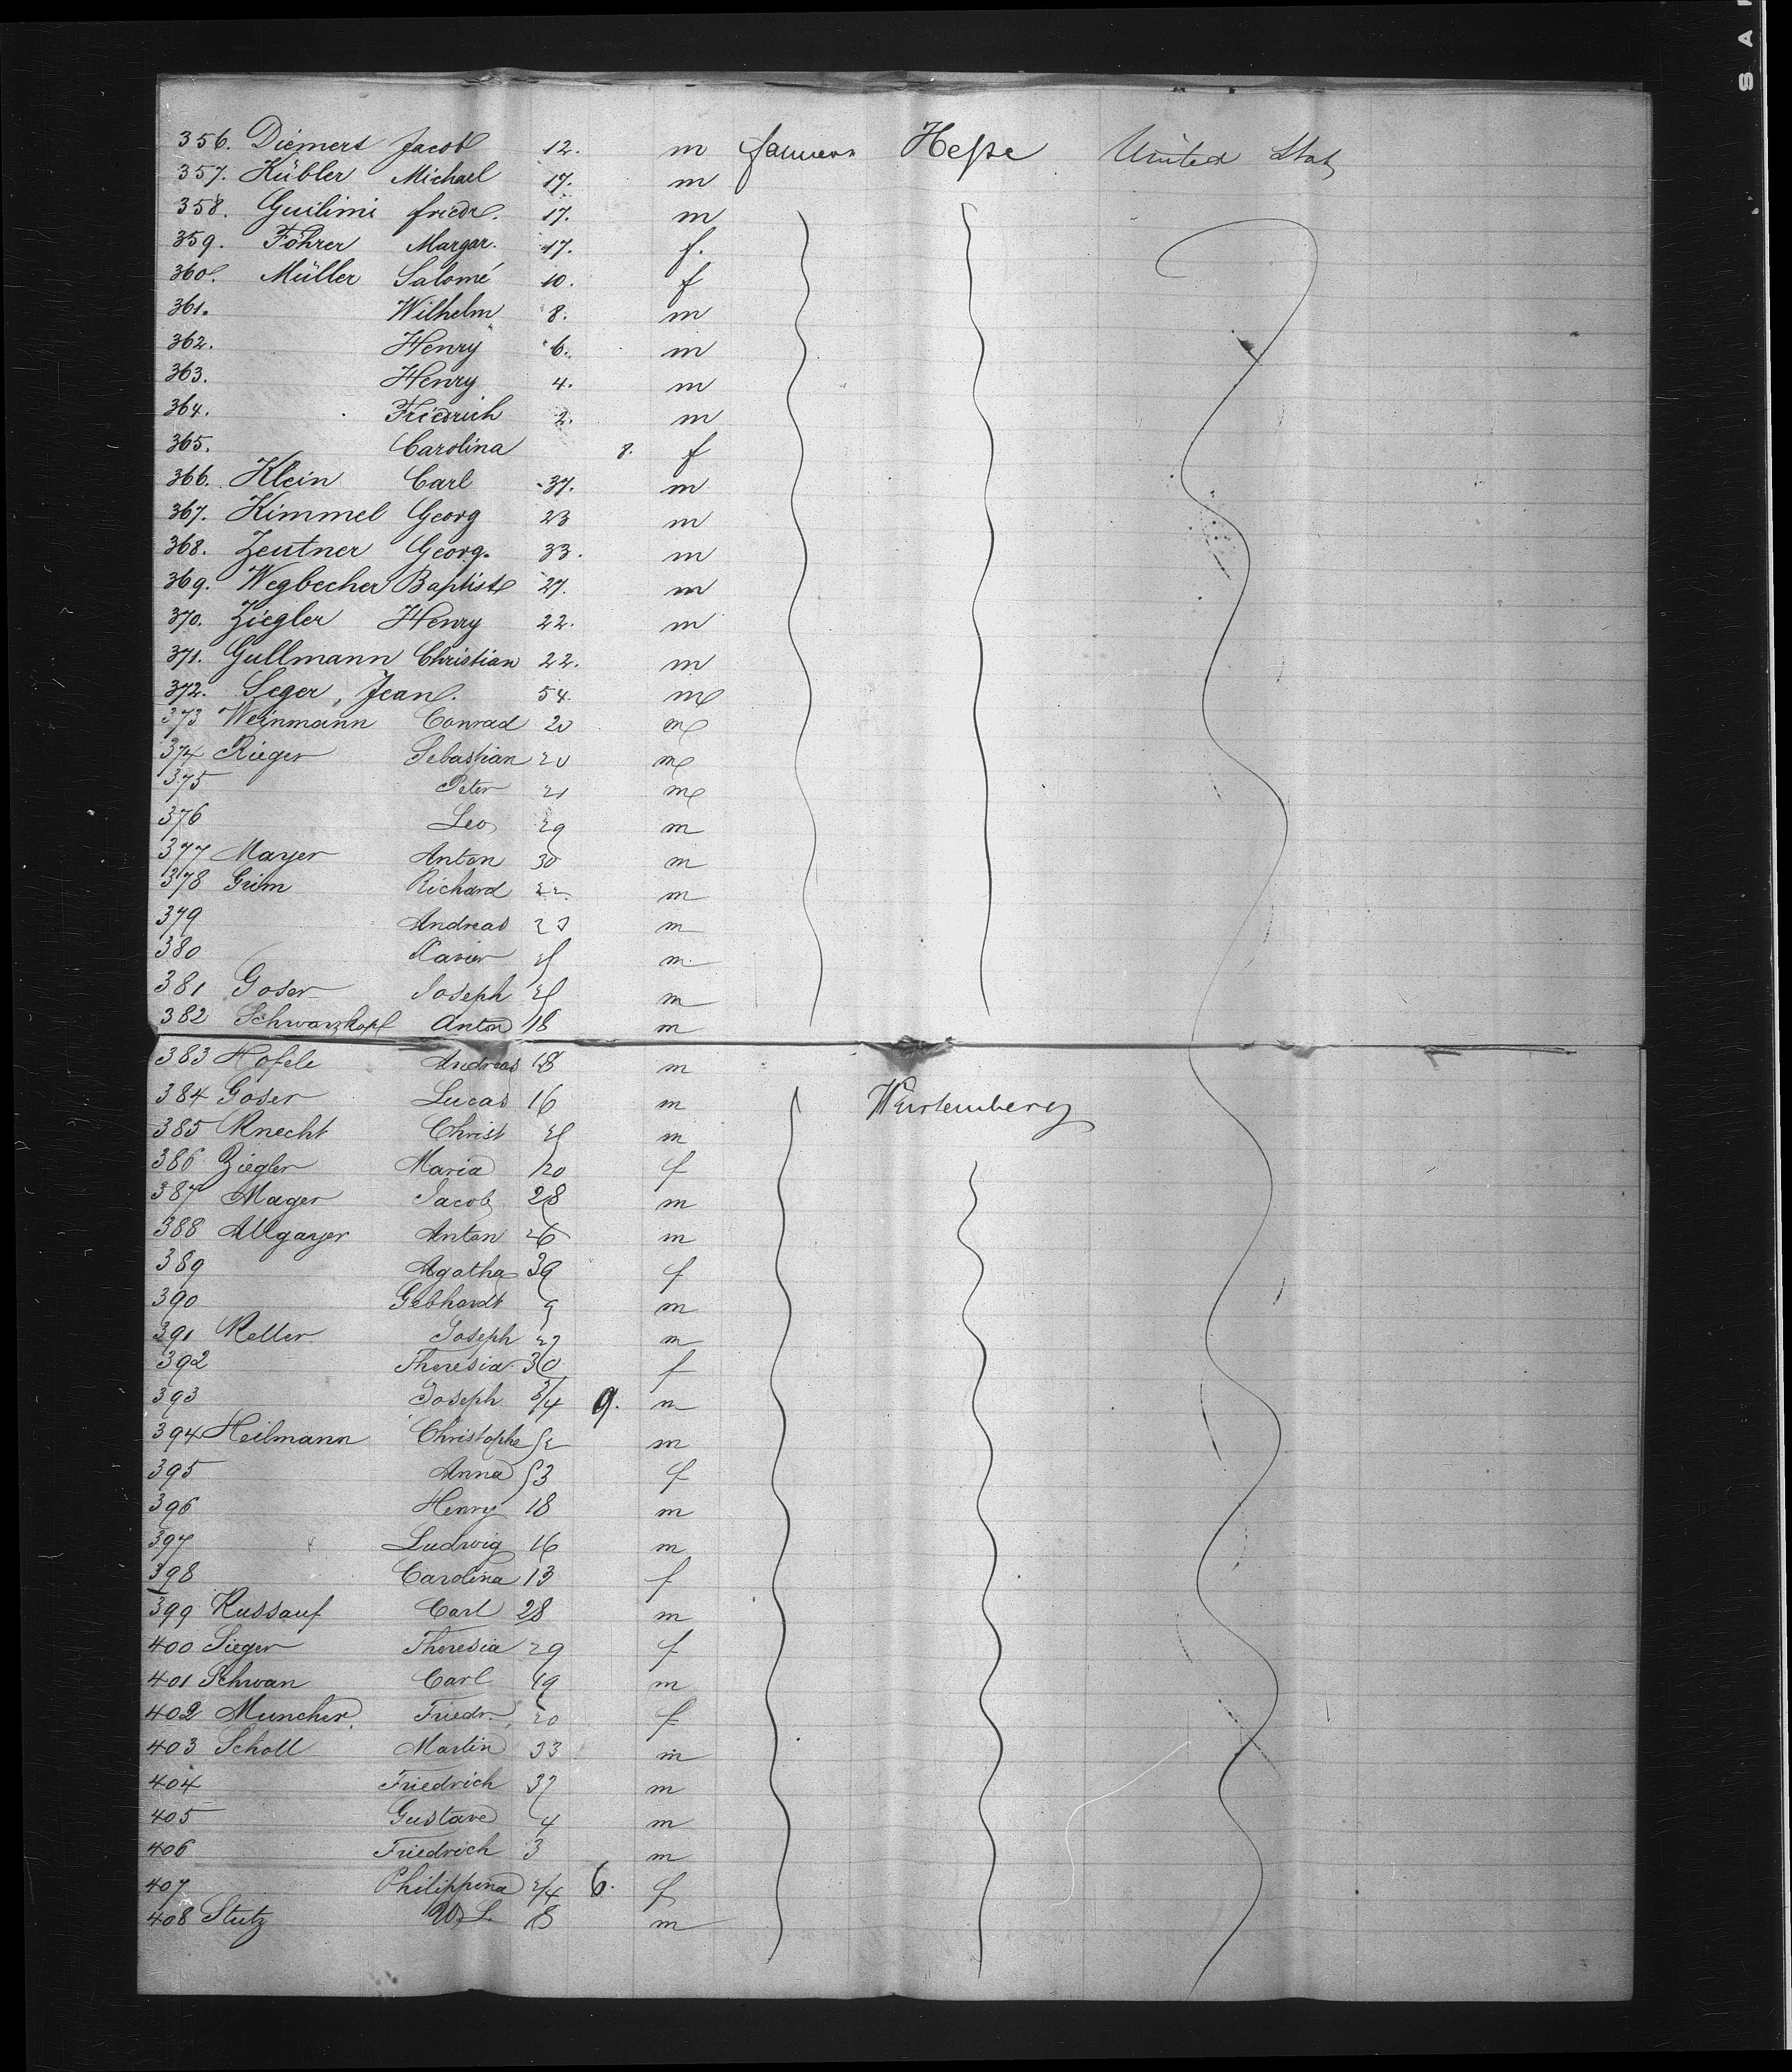 356. Diemert Jacob 12. m farmers Hesse United Stat
357. Kübler Michael 17. m
358. Guilimi friedr. 17. m
359. Föhrer Margar. 17. f.
360. Müller Salomé 10. f
361. Wilhelm 8. m
362. Henry 6. m
363. Henry 4. m
364. Friedrich 2. m
365. Carolina 8. f
366. Klein Carl 37. m
367. Kimmel Georg 23 m
368. Zeutner Georg. 33. m
369. Wegbecher Baptiste 27. m
370. Ziegler Henry 22. m
371. Gullmann Christian 22. m
372. Seger, Jean. 54. m
373 Weinmann Conrad 20 m
374 Rieger Sebastian 20 m
375 Peter 21 m
376 Leo 29 m
377 Mayer Anton 30 m
378 Grim Richard 22 m
379 Andreas 23 m
380 Xavier m
381 Goser Joseph m
382 Schwarzkopf Anton 18 m
383 Hofele Andreas 18 m
384 Goser Lucas 16 m Wurtemberg
385 Knecht Christ m
386 Ziegler Maria 20 f
387 Mager Jacob 28 m
388 Allgayer Anton 26 m
389 Agatha 39 f
390 Gebhardt 9 m
391 Keller Joseph 27 m
392 Theresia 30 f
393 Joseph 3/4 9. m
394 Heilmann Christophe 52 m
395 Anna 53 f
396 Henry 18 m
397 Ludwig 16 m
398 Carolina 13 f
399 Kussauf Carl 28 m
400 Sieger Theresia 29 f
401 Schwan Carl 19 m
402 Muncher Friedr. 20 f
403 Scholl Martin 33 m
404 Friedrich 37 m
405 Gustave 4 m
406 Friedrich 3 m
407 Philippina 2/4 6. f
408 Stutz W. L. 18 m